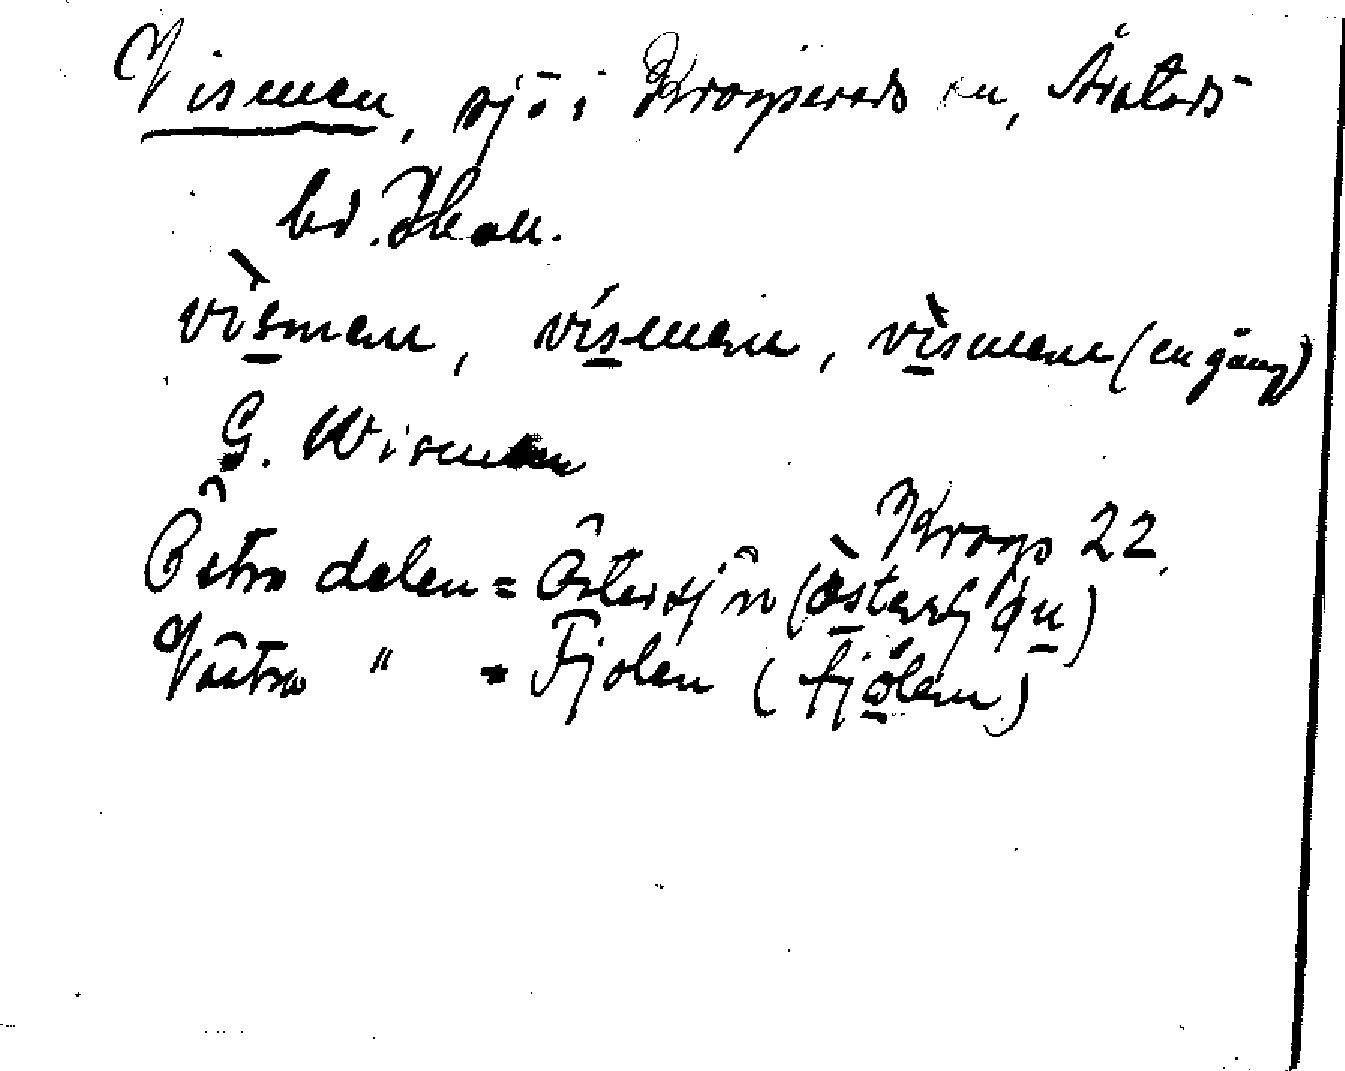 Vismen, sjö i Kroppserads sn, Åratads
hd. Skar.
vìsmen, vísmen, vìsmen (en gång)
G. Wismen
Kropps 22.
Östra delen = Östersjön (òsterſjọn)
Västra " = Fjolen (fjólen)